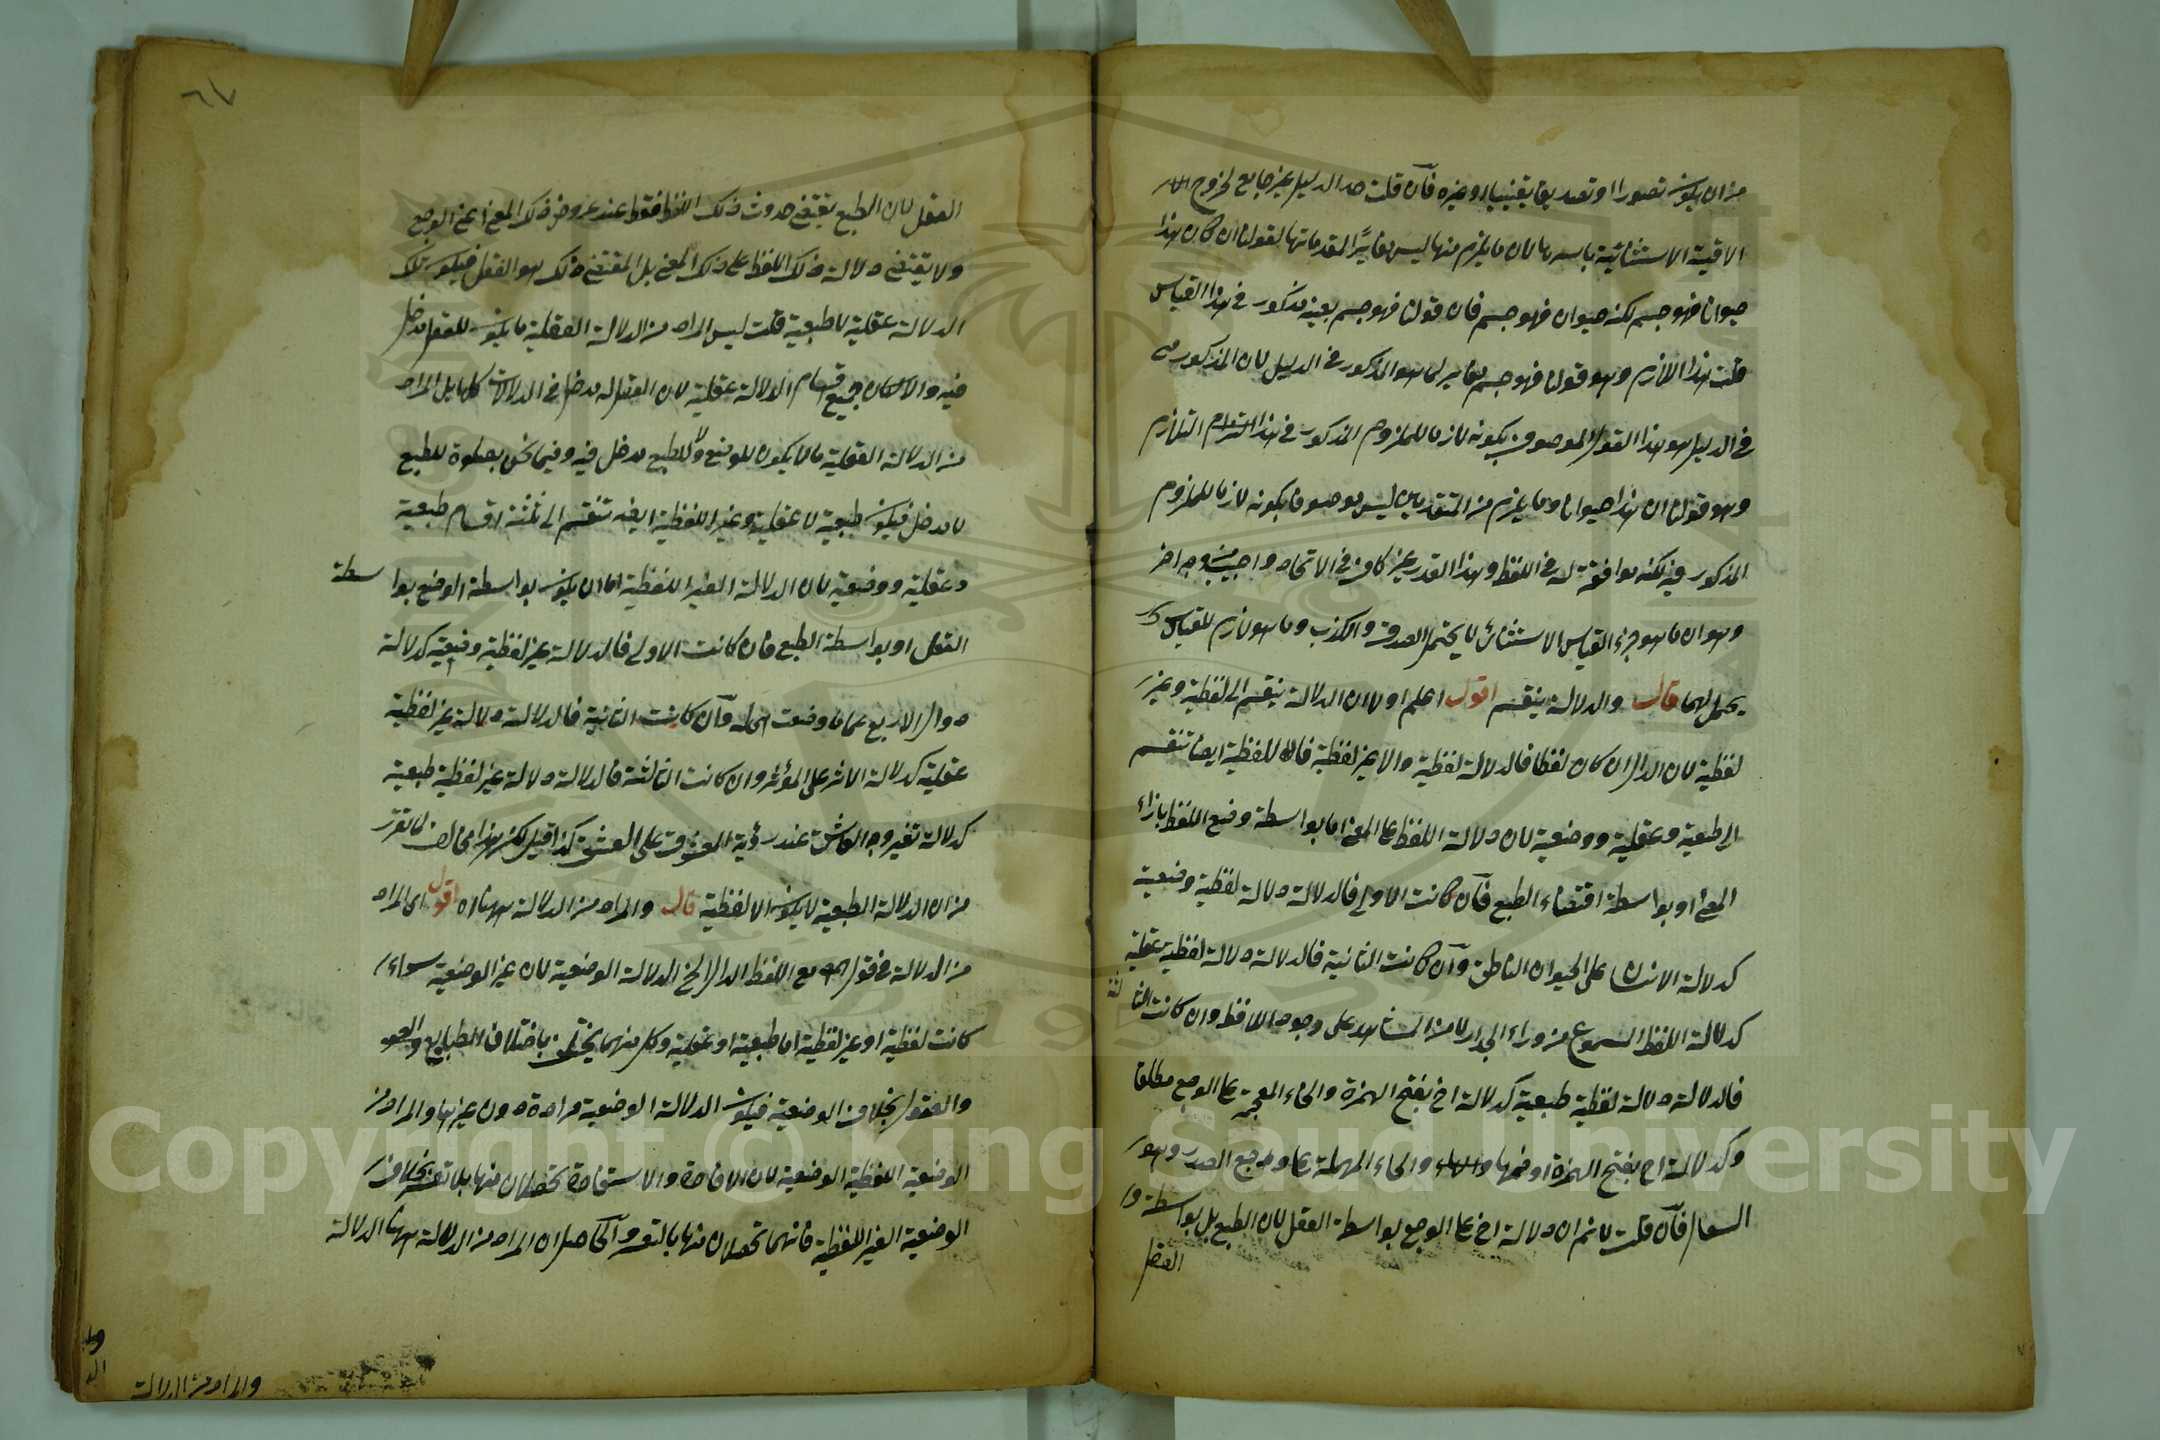 من ان يكون تصورا او تصديقا يقينيا او غيره فان قلت حد الدليل غير جامع لخروج
الاقيسة الاستثنائية باسرها لان ما يلزم منها ليس مغايرا لمقدماتها لقولنا ان كان هذا
حيوانا فهو جسم لكنه حيوان فهو جسم فان قولنا فهو جسم بعينه مذكور في هذا القياس
قلت هذا اللازم وهو قولنا فهو جسم مغاير لما هو المذكور في الدليل لان المذكور
في الدليل هو هذا القول الموصوف بكونه لازما للملزوم المذكور في هذا التلازم
وهو قولنا ان هذا حيوانا وما يلزم من المتقدمين ليس موصوفا بكونه لازما للملزوم
المذكور فيه لكنه موافقة له في اللفظ وهذا القدر غير كاف في الاتحاد واجيب بوجه اخر
وهو ان ما هو جزء القياس الاستثنائي لا يحتمل الصدق والكذب وما هو لازم للقياس
يحتملهما قال والدلالة ينقسم اقول اعلم اولا ان الدلالة ينقسم الى لفظية وغير
لفظية لان الدال ان كان لفظا فالدلالة لفظية والا غير لفظية فاللفظية ايضا تنقسم
الى طبعية وعقلية ووضعية لان دلالة اللفظ على المعنى اما بواسطة وضع اللفظ بازاء
المعنى او بواسطة اقتضاء الطبع فان كانت الاولى فالدلالة دلالة لفظية وضعية
كدلالة الانسان على الحيوان الناطق وان كانت الثانية فالدلالة دلالة لفظية عقلية
كدلالة اللفظ المسموع من وراء الجدار لا من المشاهد على وجود اللافظ وان كانت الثالثة
فالدلالة دلالة لفظية طبعية كدلالة اخ بفتح الهمزة والخاء المعجمة على الوجع مطلقا
وكدلالة اح بفتح الهمزة او ضمها والحاء المهملة على وجع الصدر وهو
السعال فان قلت لا نم ان دلالة اخ على الوجع بواسطة العقل لان الطبع بل بواسطة
العقل
٦٧
العقل لان الطبع يقتضي حدوث ذلك اللفظ فقط عند عروض ذلك المعنى اعني الوجع
ولا يقتضي دلالة ذلك اللفظ على ذلك المعنى بل المقتضي ذلك هو العقل فيكون تلك
الدلالة عقلية لا طبعية قلت ليس المراد من الدلالة العقلية ما يكون للعقل مدخل
فيه والا لكان جميع اقسام الدلالة عقلية لان العقل له مدخل في الدلالات كلها بل المراد
من الدلالة العقلية ما لا يكون للوضع ولا للطبع مدخل فيه وفيما نحن بصدده للطبع
لا مدخل فيكون طبعية لا عقلية وغير اللفظية ايضا تنقسم الى ثلثة اقسام طبعية
وعقلية ووضعية لان الدلالة الغير اللفظية اما ان يكون بواسطة الوضع بواسطة
العقل او بواسطة الطبع فان كانت الاولى فالدلالة غير لفظية وضعية كدلالة
دوال الاربع على ما وضعت له وان كانت الثانية فالدلالة دلالة غير لفظية
عقلية كدلالة الاثر على المؤثر وان كانت الثالثة فالدلالة دلالة غير لفظية طبعية
كدلالة تغير وجه العاشق عند رؤية المعشوق على العشق كذا قيل لكن هذا مخالف لما تقرر
من ان الدلالة الطبعية لا يكون الا لفظية قال والمراد من الدلالة ههنا اه اقول اى المراد
من الدلالة في قول المص مع اللفظ الدال الخ الدلالة الوضعية لان غير الوضعية سواء
كانت لفظية او غير لفظية اما طبعية او عقلية وكل منهما يختلف باختلاف الطبايع
والعقول بخلاف الوضعية فيكون الدلالة الوضعية مرادة دون غيرها والمراد من
الوضعية اللفظية الوضعية لان الافادة والاستفادة تحصلان منها بلا تعسر بخلاف
الوضعية الغير اللفظية فانهما تحصلان منها بالتعسر والحاصل ان المراد من الدلالة ههنا الدلالة
والمراد من الدلالة